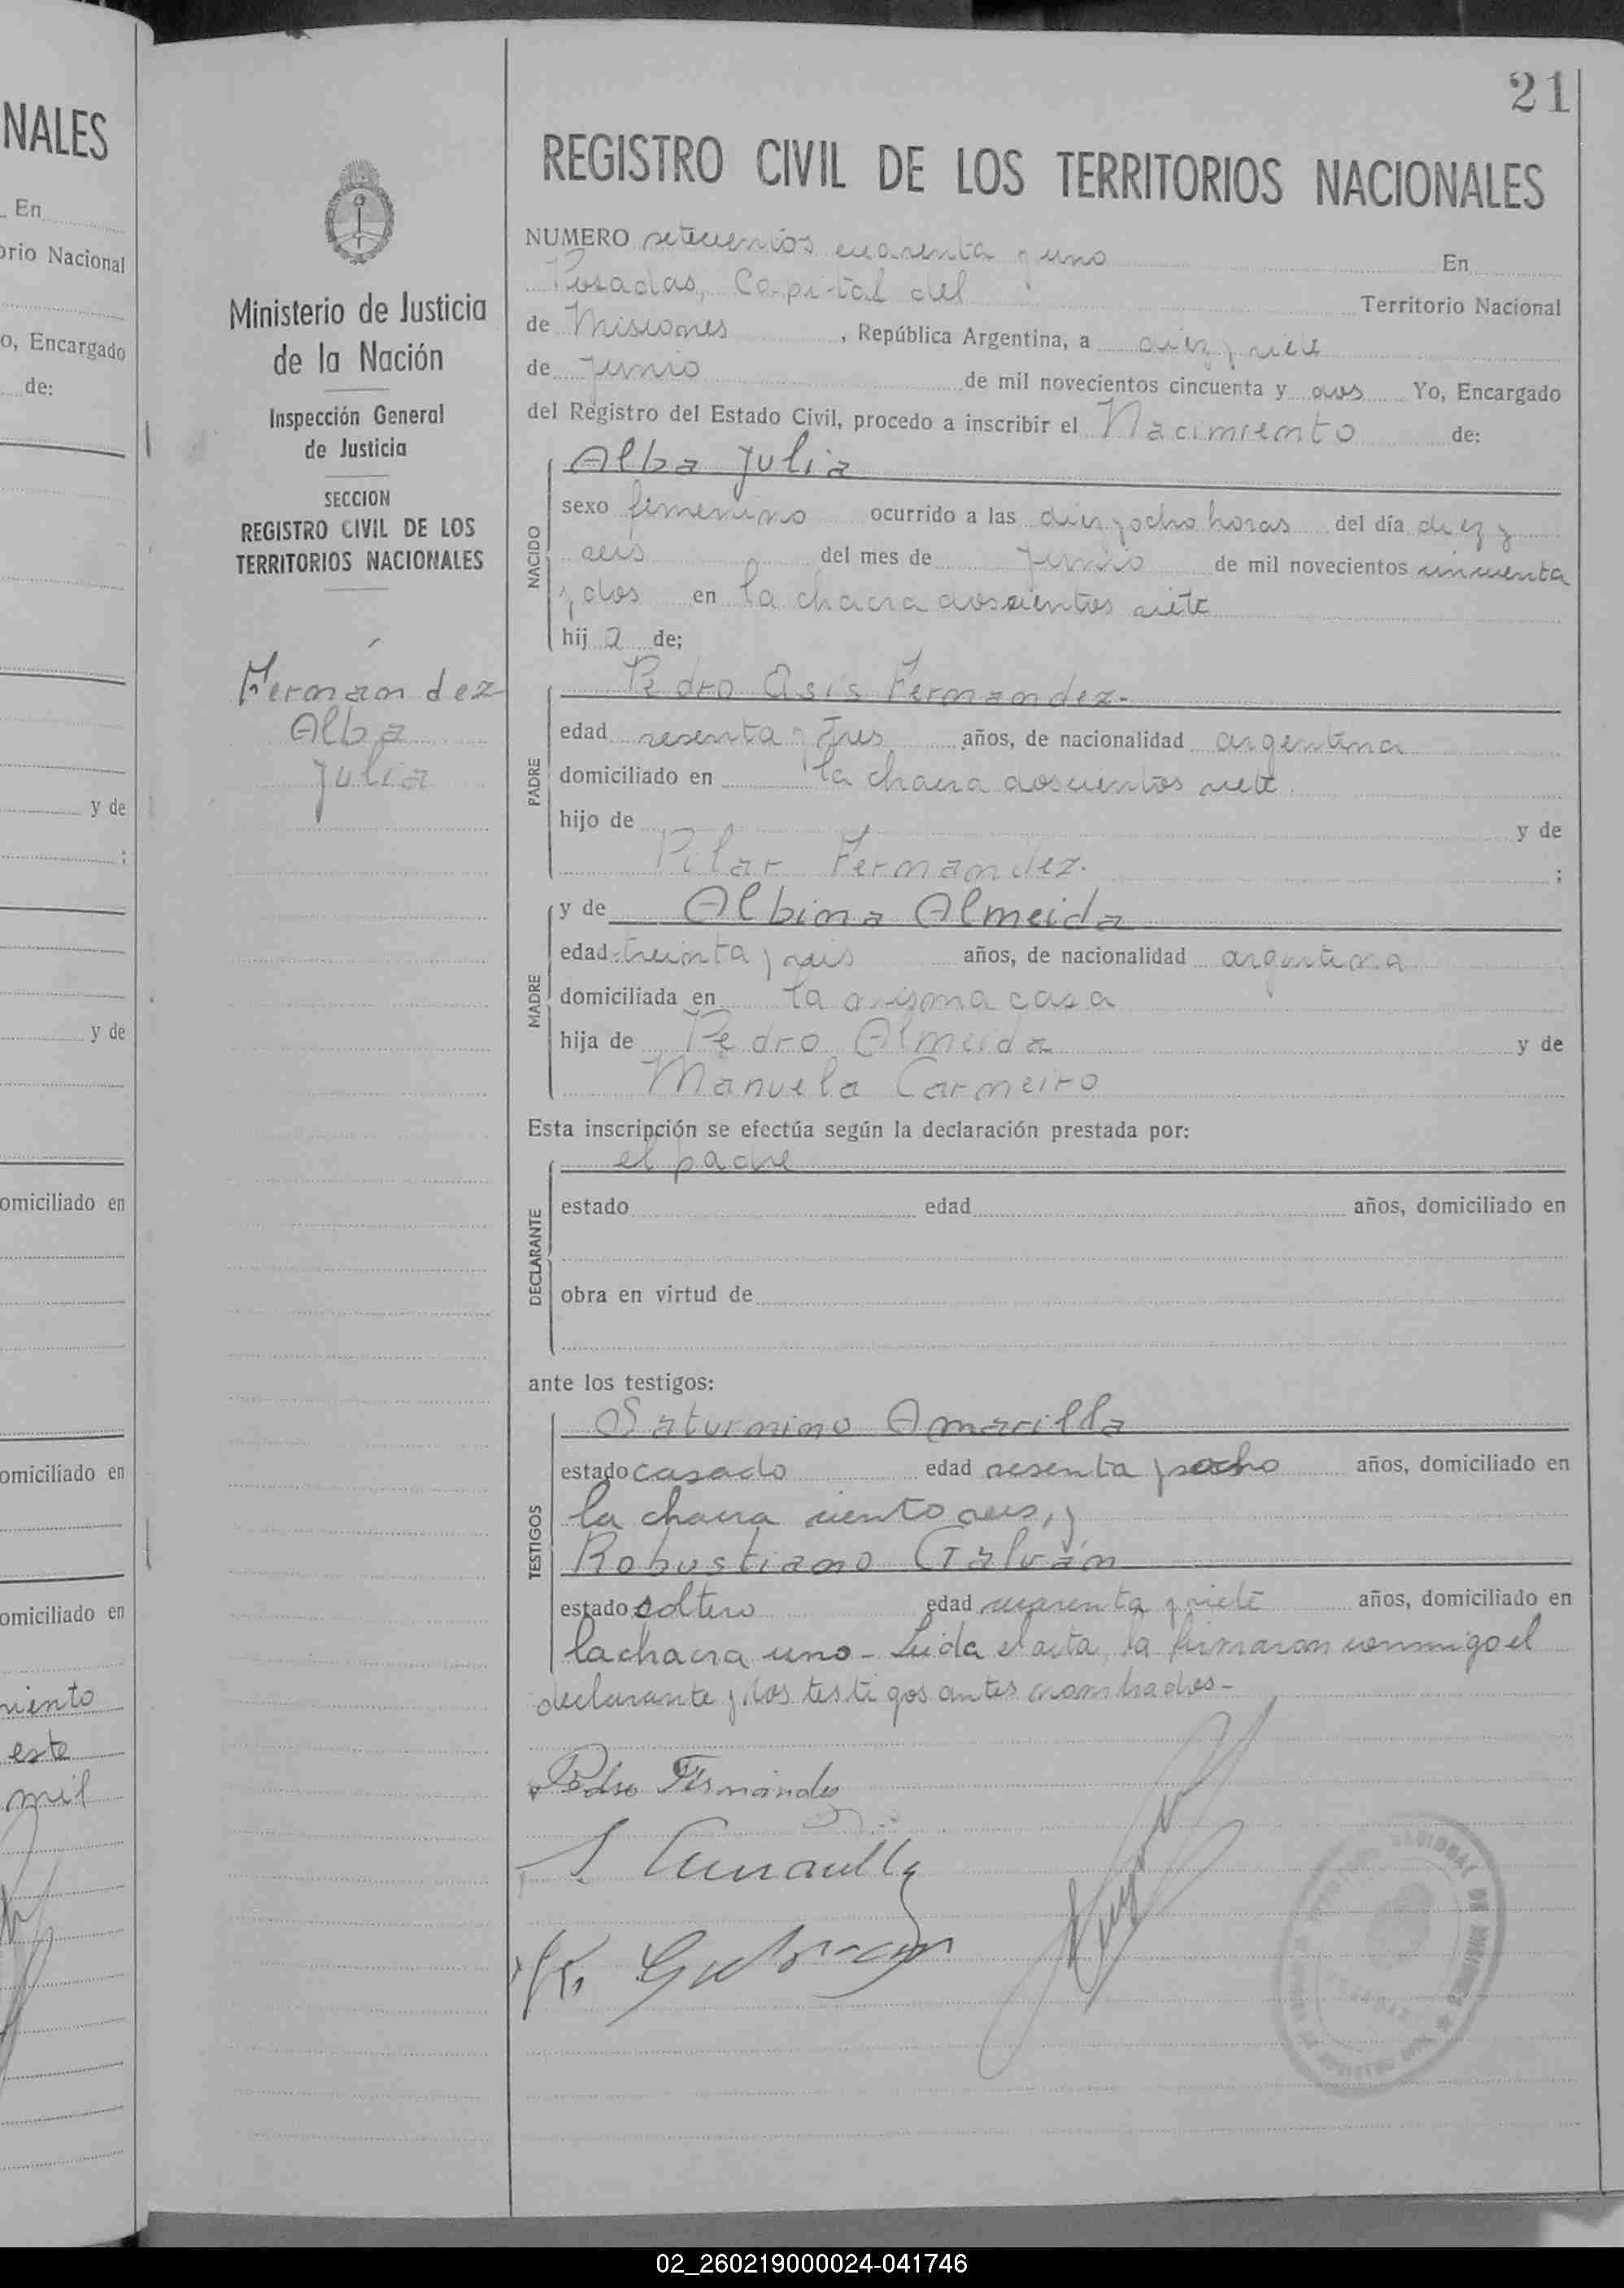 NALES
En
orio Nacional
o, Encargado
de:
y de
;
y de
omiciliado en
omiciliado en
omiciliado en
miento
este
mil
Ministerio de Justicia
de la Nación
Inspección General
de Justicia
SECCION
REGISTRO CIVIL DE LOS
TERRITORIOS NACIONALES
Fernández
Alba
Julia
21
REGISTRO CIVIL DE LOS TERRITORIOS NACIONALES
NUMERO setecientos cuarenta y uno En
Posadas, Capital del Territorio Nacional
de Misiones, República Argentina, a diez y siete
de Junio de mil novecientos cincuenta y dos Yo, Encargado
del Registro del Estado Civil, procedo a inscribir el Nacimiento de:
NACIDO
Alba Julia
sexo femenino ocurrido a las diez y ocho horas del día diez y
seis del mes de Junio de mil novecientos cincuenta
y dos en la chacra doscientos siete
hija de;
PADRE
Pedro Asís Fernandez-
edad sesenta y tres años, de nacionalidad argentina
domiciliado en la chacra doscientos siete
hijo de y de
Pilar Fernandez. ;
MADRE
y de Albina Almeida
edad treinta y seis años, de nacionalidad argentina
domiciliada en la misma casa
hija de Pedro Almeida y de
Manuela Carneiro
Esta inscripción se efectúa según la declaración prestada por:
DECLARANTE
el padre
estado edad años, domiciliado en
obra en virtud de
ante los testigos:
TESTIGOS
Saturnino Amarilla
estado casado edad sesenta y ocho años, domiciliado en
la chacra ciento seis, y
Robustiano Galván
estado soltero edad cuarenta y siete años, domiciliado en
la chacra uno - Leida el acta, la firmaron conmigo el
declarante y los testigos antes nombrados-
Pedro Fernández
S. Amarilla
R. Galvan
NACIONAL DE MISIONES
02_260219000024-041746